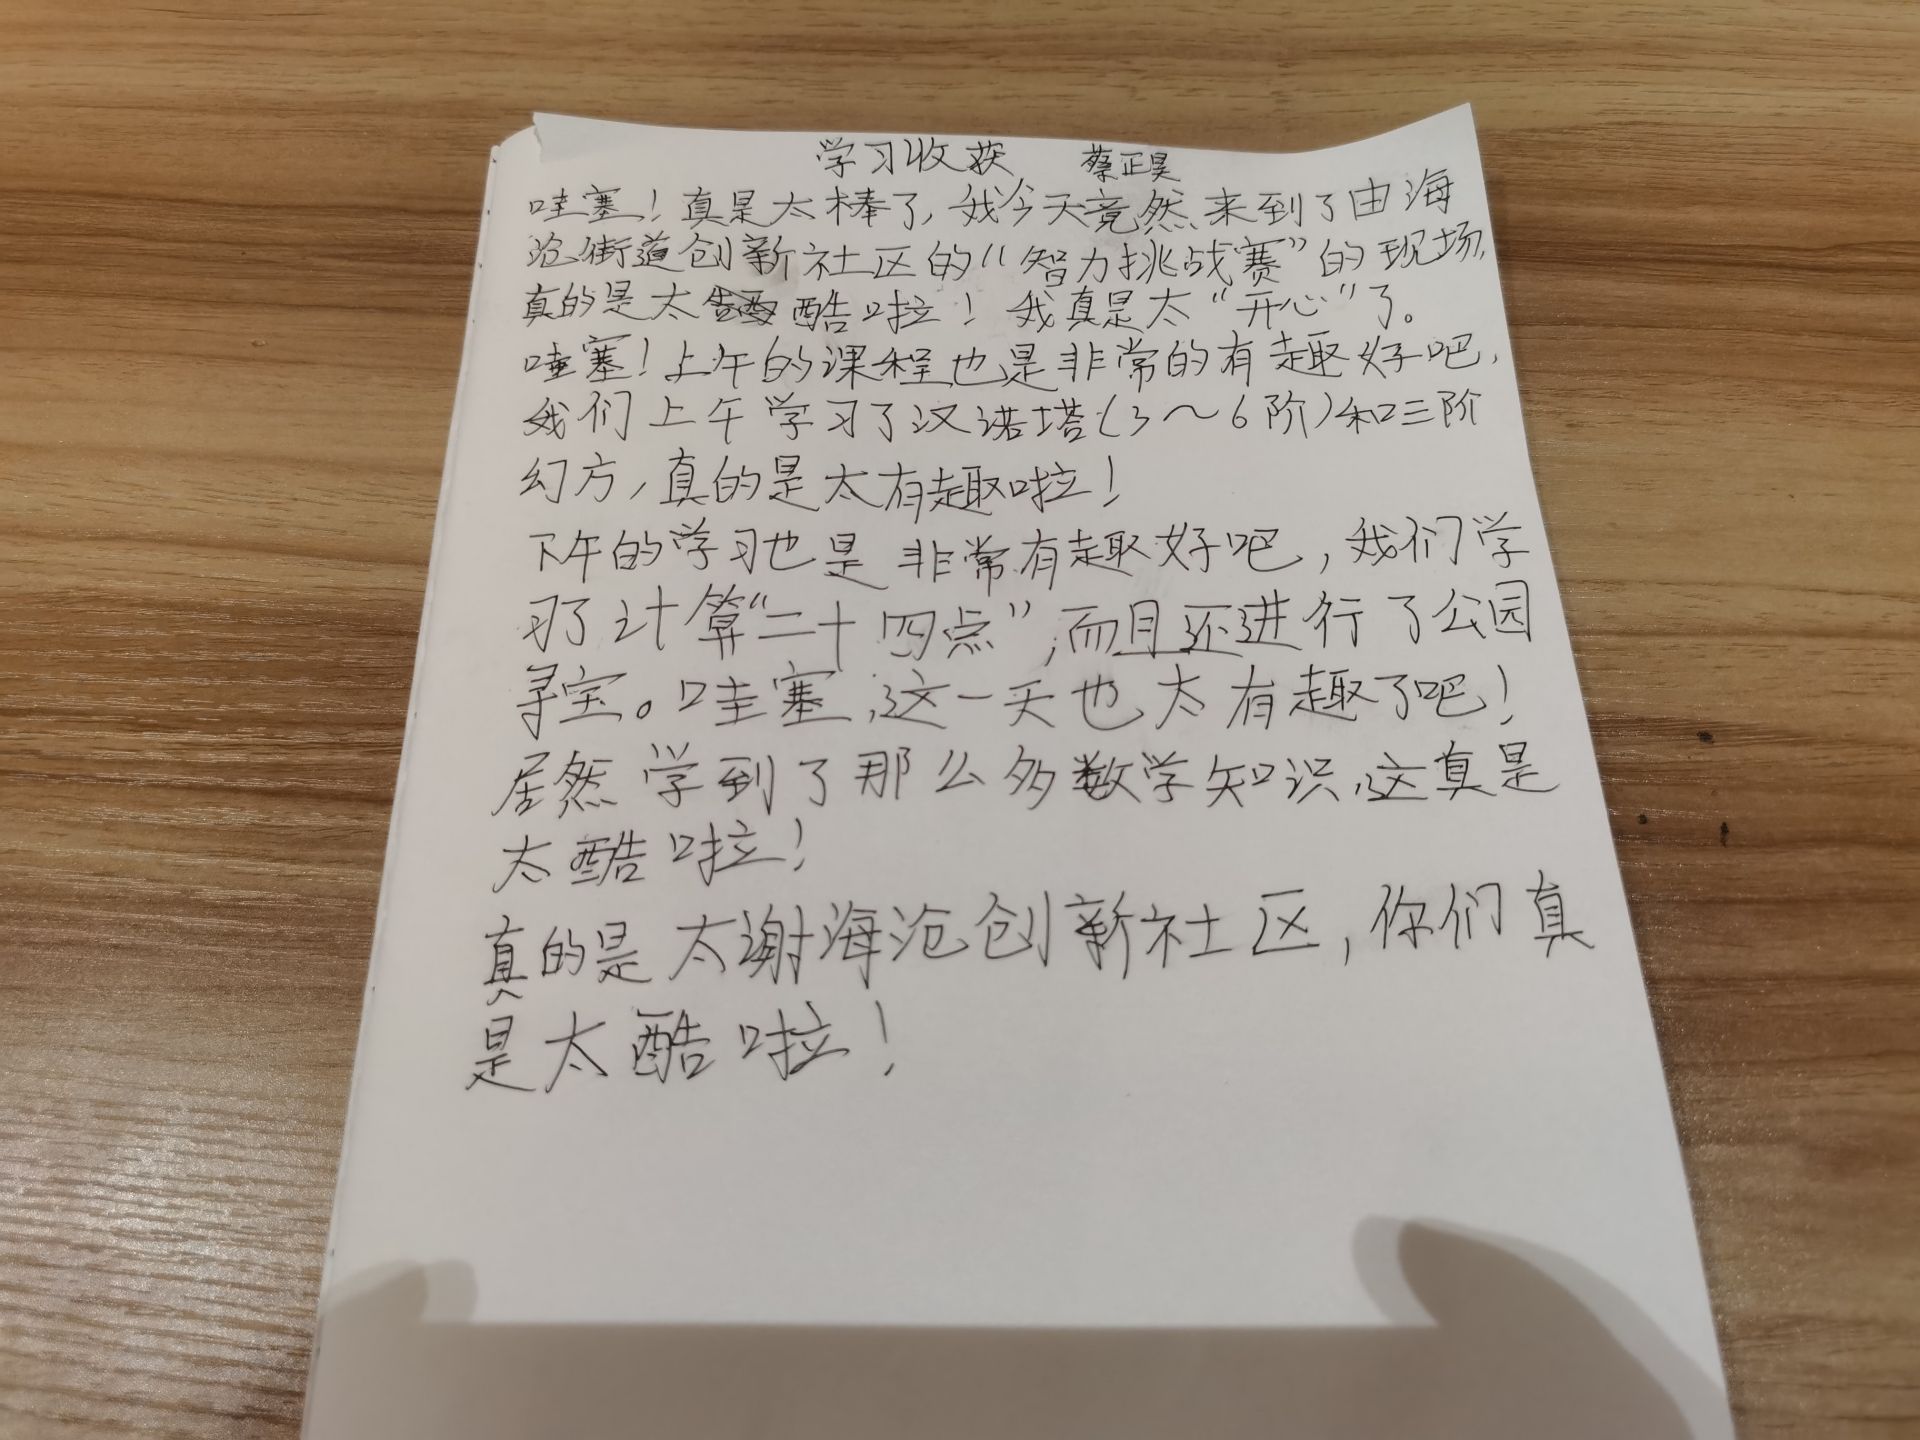 学习收获 蔡正昊
哇塞！真是太棒了，我今天竟然来到了由海
沧街道创新社区的“智力挑战赛”的现场，
真的是太酷啦！我真是太“开心”了。
哇塞！上午的课程也是非常的有趣好吧，
我们上午学习了汉诺塔（3～6阶）和三阶
幻方，真的是太有趣啦！
下午的学习也是非常有趣好吧，我们学
习了计算“二十四点”，而且还进行了公园
寻宝。哇塞，这一天也太有趣了吧！
居然学到了那么多数学知识，这真是
太酷啦！
真的是太谢海沧创新社区，你们真
是太酷啦！